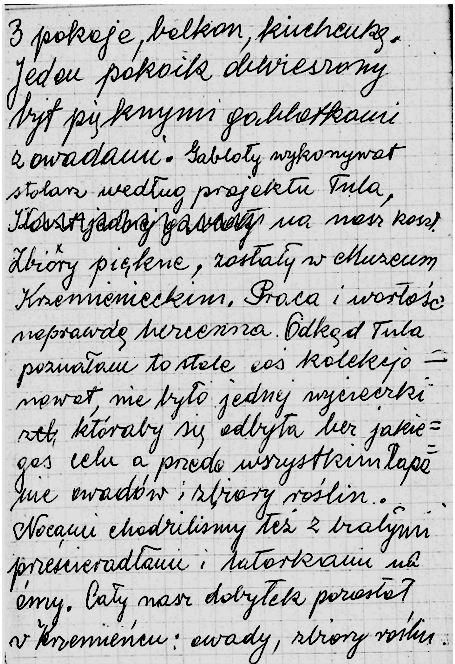 3 pokoje, balkon, kuchenka.
Jeden pokoik obwieszony
był pięknymi gablotkami
z owadami. Gabloty wykonywał
stolarz według projektu Tula,
na nasz koszt.
Zbiory piękne, zostały w Muzeum
Krzemienieckim. Praca i wartość
naprawdę bezcenna. Odkąd Tula
poznałam to stale coś kolekcjo=
nował, nie było jednej wycieczki
któraby się odbyła bez jakie=
goś celu a przede wszystkim łapa=
nie owadów i zbiory roślin.
Nocami chodziliśmy też z białymi
prześcieradłami i latarkami na
ćmy. Cały nasz dobytek pozostał
w Krzemieńcu: owady, zbiory roślin.